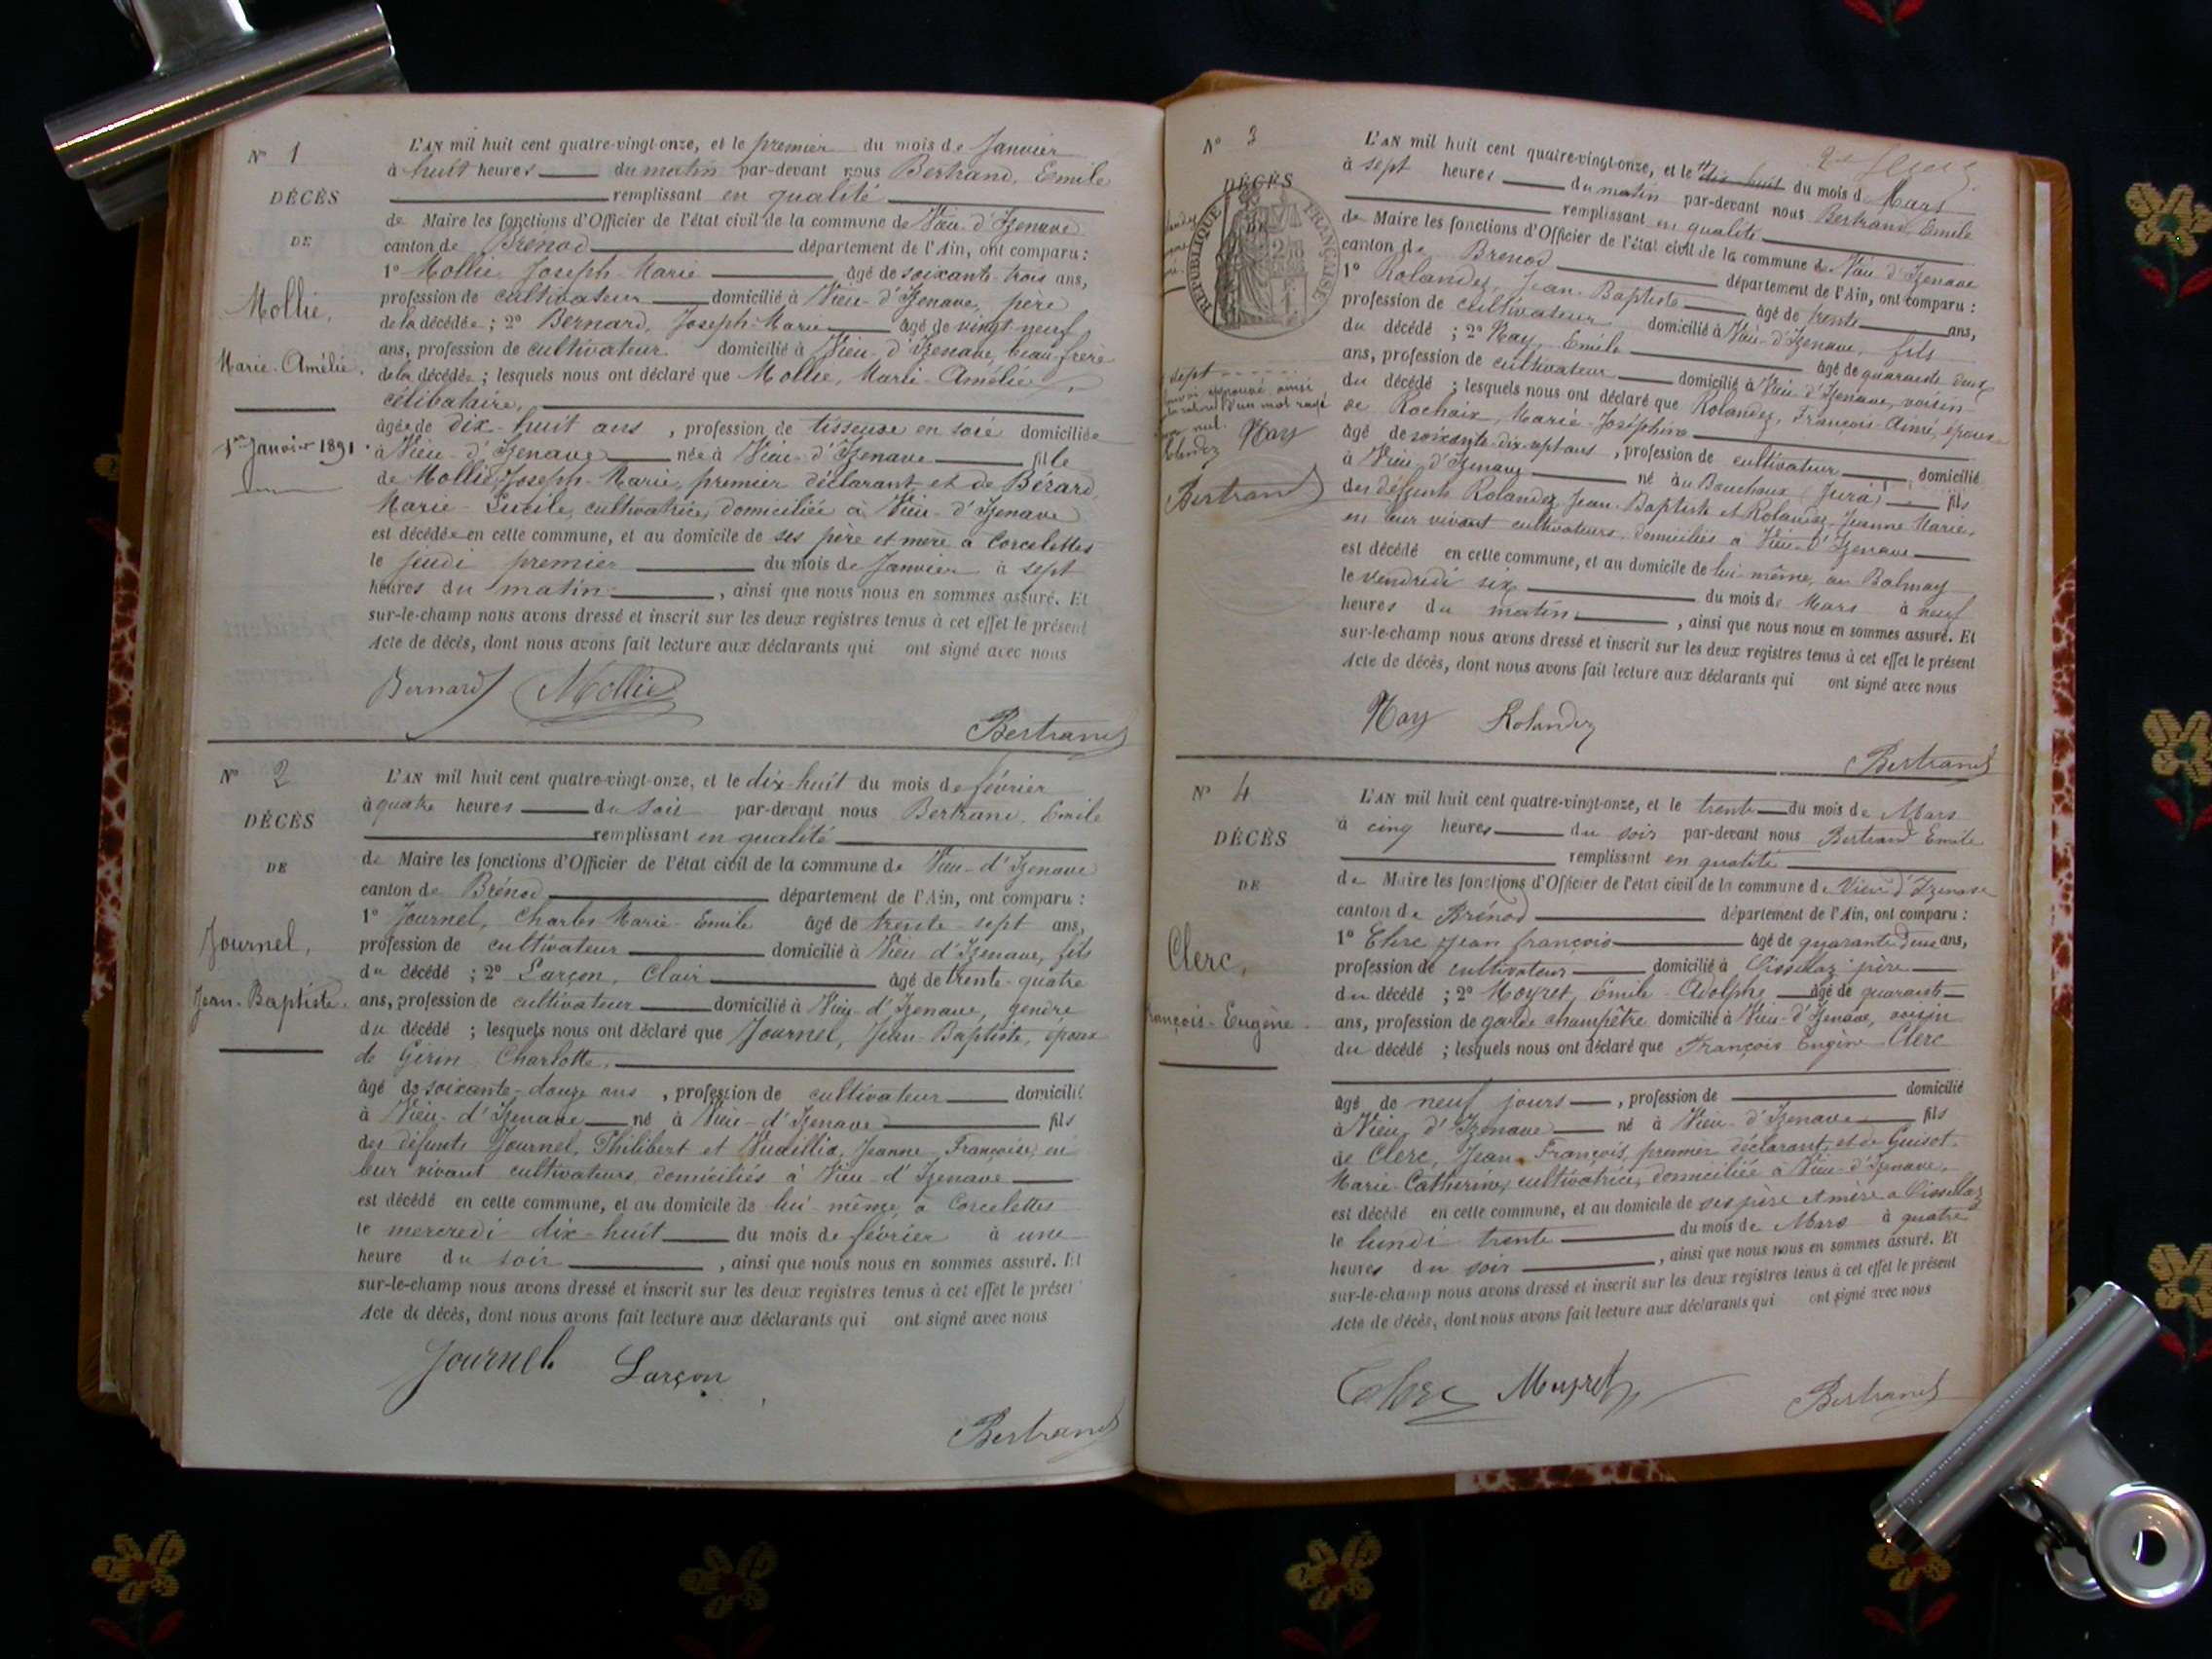 N° 1
DÉCÈS
DE
Mollie,
Marie-Amélie.
1er Janvier 1891.
L'AN mil huit cent quatre-vingt-onze, et le premier du mois de Janvier
à huit heures du matin par-devant nous Bertrand, Emile
remplissant en qualité
de Maire les fonctions d'Officier de l'état civil de la commune de Vieu-d'Izenave
canton de Brénod département de l'Ain, ont comparu :
1° Mollie, Joseph-Marie âgé de soixante-trois ans,
profession de cultivateur domicilié à Vieu-d'Izenave, père
de la décédée ; 2° Bernard, Joseph-Marie âgé de vingt-neuf
ans, profession de cultivateur domicilié à Vieu-d'Izenave, beau-frère
de la décédée ; lesquels nous ont déclaré que Mollie, Marie-Amélie,
célibataire,
âgée de dix-huit ans, profession de tisseuse en soie domiciliée
à Vieu-d'Izenave née à Vieu-d'Izenave fille
de Mollie, Joseph-Marie, premier déclarant et de Bérard,
Marie-Lucile, cultivatrice, domiciliée à Vieu-d'Izenave
est décédée en cette commune, et au domicile de ses père et mère à Corcelettes
le jeudi premier du mois de Janvier à sept
heures du matin, ainsi que nous nous en sommes assuré. Et
sur-le-champ nous avons dressé et inscrit sur les deux registres tenus à cet effet le présent
Acte de décès, dont nous avons fait lecture aux déclarants qui ont signé avec nous
Bernard Mollie
Bertrand
N° 2
DÉCÈS
DE
Journel,
Jean-Baptiste.
L'AN mil huit cent quatre-vingt-onze, et le dix-huit du mois de février
à quatre heures du soir par-devant nous Bertrand, Emile
remplissant en qualité
de Maire les fonctions d'Officier de l'état civil de la commune de Vieu-d'Izenave
canton de Brénod département de l'Ain, ont comparu :
1° Journel, Charles Marie-Emile âgé de trente-sept ans,
profession de cultivateur domicilié à Vieu d'Izenave, fils
du décédé ; 2° Larçon, Clair âgé de trente-quatre
ans, profession de cultivateur domicilié à Vieu-d'Izenave, gendre
du décédé ; lesquels nous ont déclaré que Journel, Jean-Baptiste, époux
de Girin Charlotte,
âgé de soixante-douze ans, profession de cultivateur domicilié
à Vieu-d'Izenave né à Vieu-d'Izenave fils
des défunts Journel, Philibert et Jeanne Françoise, en
leur vivant cultivateurs, domiciliés à Vieu-d'Izenave
est décédé en cette commune, et au domicile de lui-même, à Corcelettes
le mercredi dix-huit du mois de février à une
heure du soir, ainsi que nous nous en sommes assuré. Et
sur-le-champ nous avons dressé et inscrit sur les deux registres tenus à cet effet le présen
Acte de décès, dont nous avons fait lecture aux déclarants qui ont signé avec nous
Journel Larçon
Bertrand
N° 3
DÉCÈS
RÉPUBLIQUE FRANÇAISE
sept
approuvé ainsi
d'un mot rayé
nul.
Ray
Bertrand
L'AN mil huit cent quatre-vingt-onze, et le dix-huit du mois de Mars
à sept heures du matin par-devant nous Bertrand, Emile
remplissant en qualité
de Maire les fonctions d'Officier de l'état civil de la commune de Vieu d'Izenave
canton de Brénod département de l'Ain, ont comparu :
1° Rolandez, Jean-Baptiste âgé de trente ans,
profession de cultivateur domicilié à Vieu-d'Izenave, fils
du décédé ; 2° Ray, Emile âgé de quarante-deux
ans, profession de cultivateur domicilié à Vieu d'Izenave, voisin
du décédé ; lesquels nous ont déclaré que Rolandez, François-Aimé, époux
de Rochaix, Marie-Joséphine
âgé de soixante-dix-sept ans, profession de cultivateur domicilié
à Vieu-d'Izenave né au Bouchoux (Jura) fils
des défunts Rolandez, Jean-Baptiste et Rolandez Jeanne Marie,
en leur vivant cultivateurs, domiciliés à Vieu-d'Izenave
est décédé en cette commune, et au domicile de lui-même, au Balmay
le vendredi six du mois de Mars à neuf
heures du matin, ainsi que nous nous en sommes assuré. Et
sur-le-champ nous avons dressé et inscrit sur les deux registres tenus à cet effet le présent
Acte de décès, dont nous avons fait lecture aux déclarants qui ont signé avec nous
Ray Rolandez
Bertrand
N° 4
DÉCÈS
DE
Clerc,
rançois-Eugène
L'AN mil huit cent quatre-vingt-onze, et le trente du mois de Mars
à cinq heures du soir par-devant nous Bertrand Emile
remplissant en qualité
de Maire les fonctions d'Officier de l'état civil de la commune de Vieu d'Izenave
canton de Brénod département de l'Ain, ont comparu :
1° Clerc Jean François âgé de quarante deux ans,
profession de cultivateur domicilié à Cisselaz père
du décédé ; 2° Moyret, Emile-Adolphe âgé de quarante
ans, profession de garde champêtre domicilié à Vieu-d'Izenave, voisin
du décédé ; lesquels nous ont déclaré que François Eugène Clerc
âgé de neuf jours, profession de domicilié
à Vieu d'Izenave né à Vieu-d'Izenave fils
de Clerc, Jean François, premier déclarant, et de Guisot
Marie Catherine, cultivatrice, domiciliée à Vieu-d'Izenave,
est décédé en cette commune, et au domicile de ses père et mère à Cisselaz
le lundi trente du mois de Mars à quatre
heures du soir, ainsi que nous nous en sommes assuré. Et
sur-le-champ nous avons dressé et inscrit sur les deux registres tenus à cet effet le présent
Acte de décès, dont nous avons fait lecture aux déclarants qui ont signé avec nous
Clerc Moyret
Bertrand